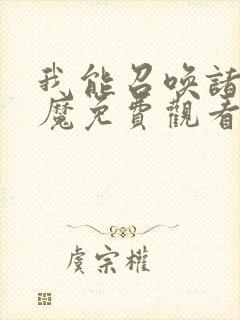 我能召喚諸
魔免費觀看
虞宗權